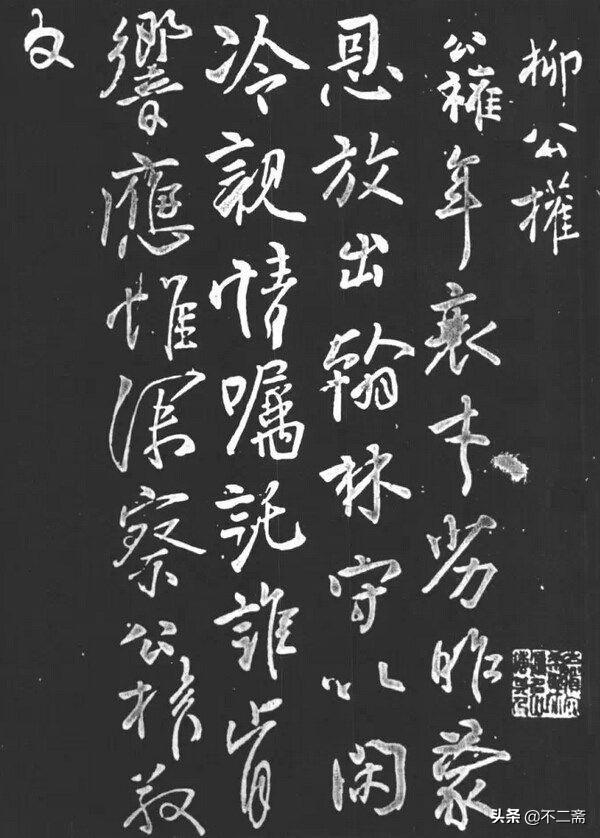 柳公權
公權年衰才劣昨蒙
恩放出翰林守以閑
冷親情囑託誰肯
響應惟深察公權敬
白
头条 @不二斋